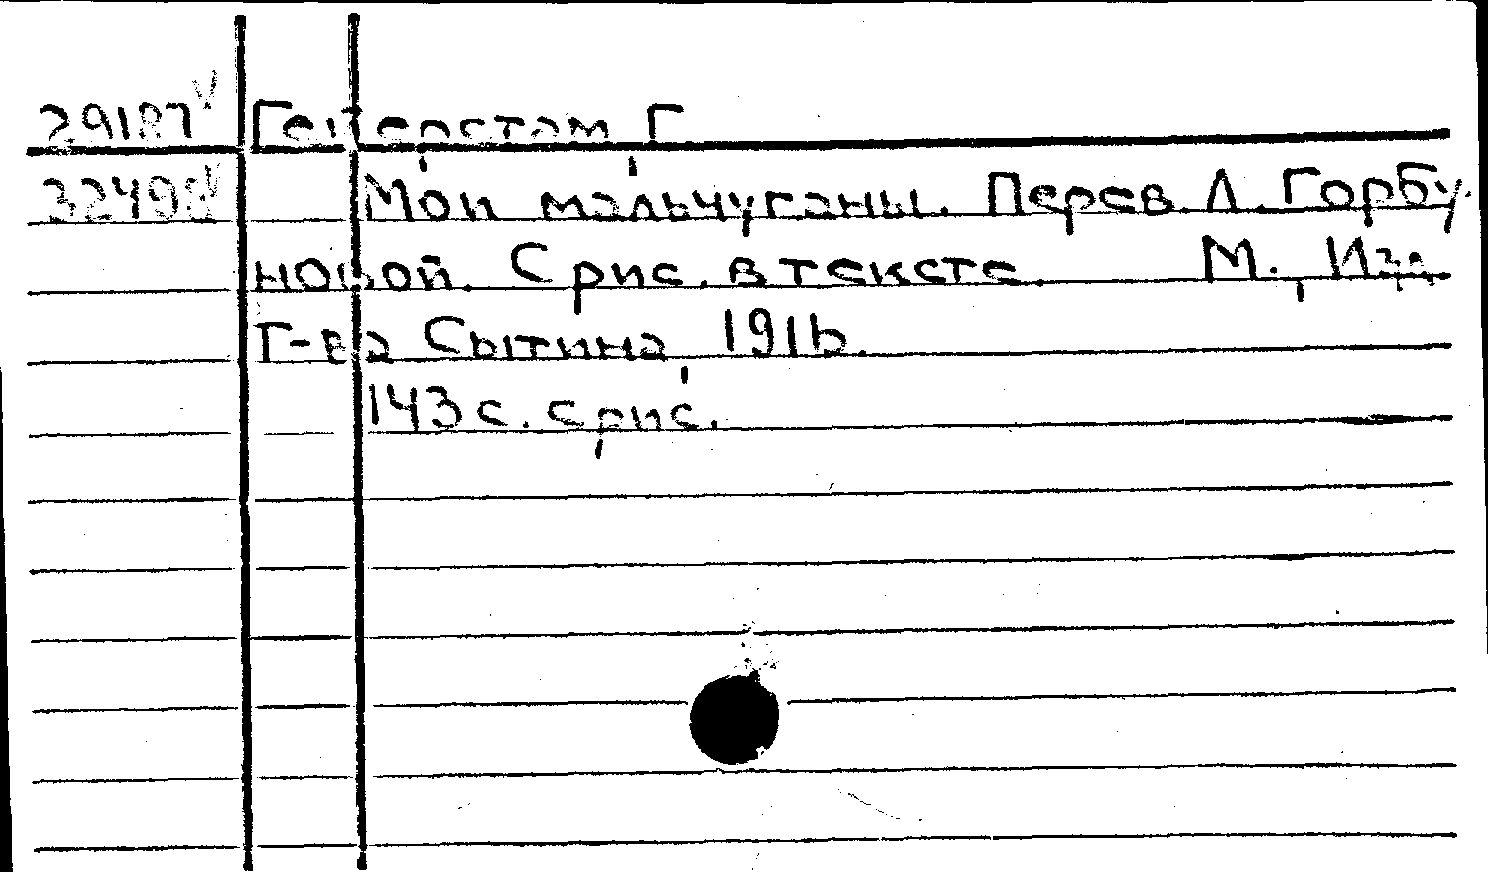 29187 Гейерстам Г.
32498 Мои мальчуганы. Перев. Л. Горбу-
новой. С рис. в тексте. М., Изд.
Т-ва Сытина, 1916.
143 с. с рис.